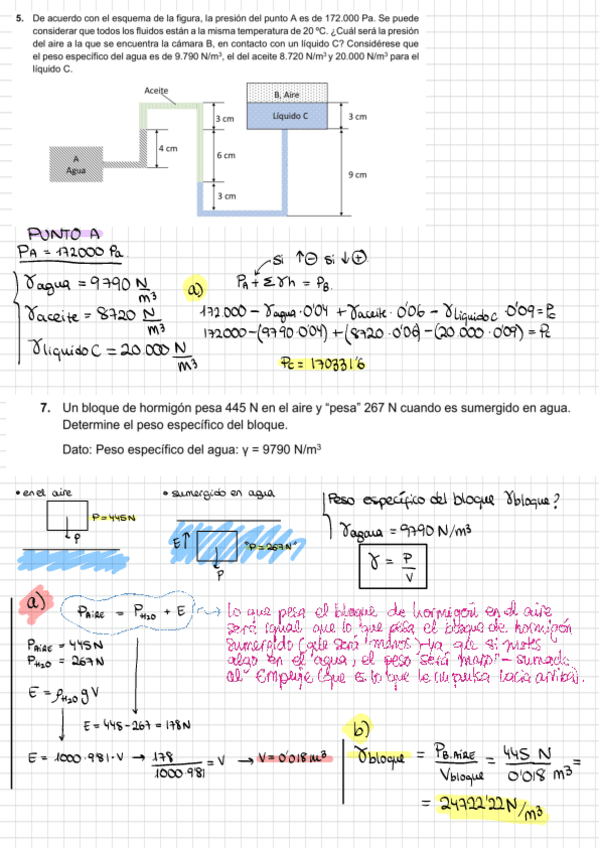 5. De acuerdo con el esquema de la figura, la presión del punto A es de 172.000 Pa. Se puede
considerar que todos los fluidos están a la misma temperatura de 20 ºC. ¿Cuál será la presión
del aire a la que se encuentra la cámara B, en contacto con un líquido C? Considérese que
el peso específico del agua es de 9.790 N/m³, el del aceite 8.720 N/m³ y 20.000 N/m³ para el
líquido C.
Aceite
B, Aire
3 cm
Líquido C
3 cm
4 cm
6 cm
A
Agua
9 cm
3 cm
PUNTO A
PA = 172000 Pa.
γagua = 9790 N/m³
γaceite = 8720 N/m³
γliquido C = 20.000 N/m³
si ↑⊖ si ↓⊕
a) PA + Σγh = PB.
172.000 - γagua · 0'04 + γaceite · 0'06 - γliquido C · 0'09 = Pc
172000 - (9790 · 0'04) + (8720 · 0'06) - (20.000 · 0'09) = Pc
Pc = 170331'6
7. Un bloque de hormigón pesa 445 N en el aire y “pesa” 267 N cuando es sumergido en agua.
Determine el peso específico del bloque.
Dato: Peso específico del agua: γ = 9790 N/m³
• en el aire
P = 445N
P
• sumergido en agua
E↑
"P = 267N"
P
Peso específico del bloque γbloque?
γagua = 9790 N/m³
γ = P/V
a) PAIRE = PH2O + E
lo que pesa el bloque de hormigón en el aire
será igual que lo que pesa el bloque de hormigón
sumergido (que será "menos") ya que si metes
algo en el agua, el peso será menor - sumado
al Empuje (que es lo que le impulsa hacia arriba).
PAIRE = 445N
PH2O = 267N
E = ρH2O g V
E = 445 - 267 = 178N
E = 1000 · 9'81 · V → 178/1000·9'81 = V → V = 0'018 m³
b)
γbloque = PB.AIRE/Vbloque = 445 N/0'018 m³ =
= 24722'22 N/m³